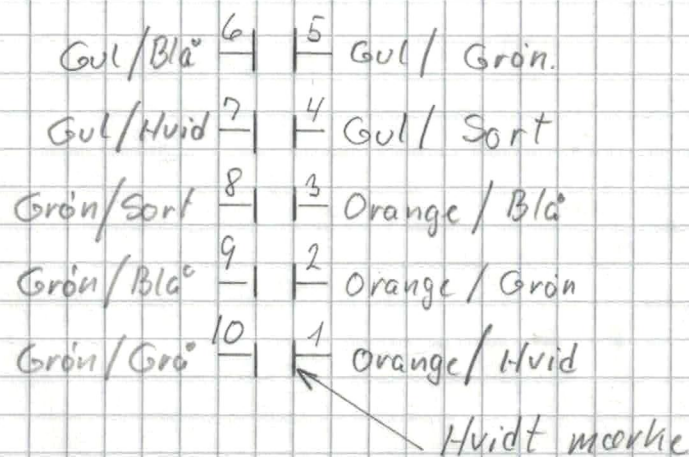 Gul/Blå 6 5 Gul/ Grön.
Gul/Hvid 7 4 Gul/ Sort
Grön/Sort 8 3 Orange/Blå
Grön/Blå 9 2 Orange/Grön
Grön/Grå 10 1 Orange/Hvid
Hvidt mærke